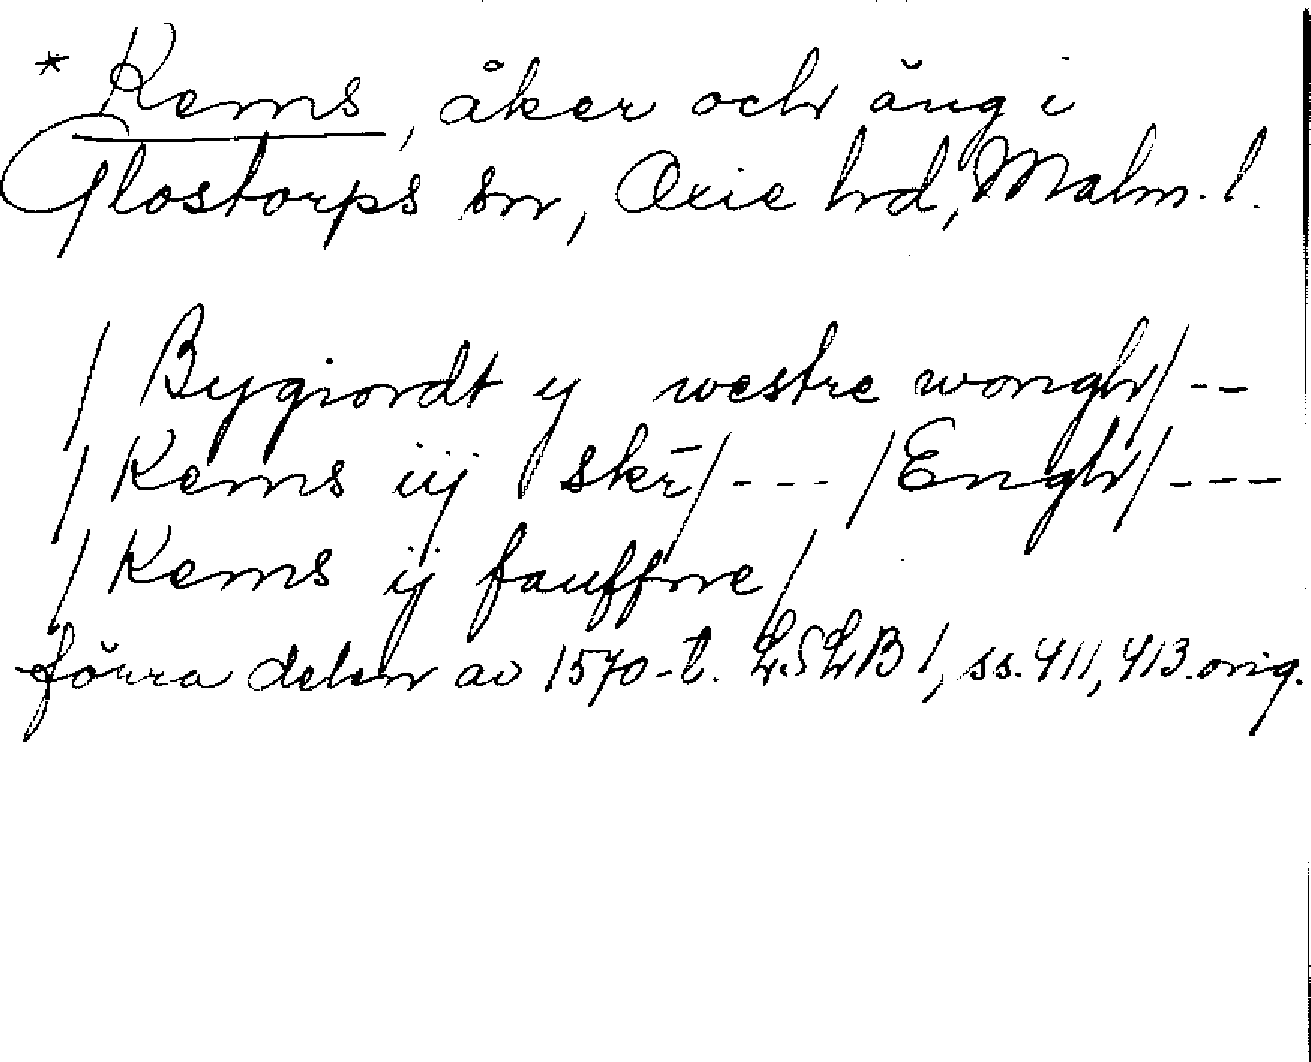 * Kems, åker och äng i
Glostorps sn, Oxie hd, Malm. l.
/ Bygiordt y westre wongh/ --
/ Kems iij skr̄/ --- / Engh/ ---
/ Kems ij fauffne/
förra delen av 1570-t. L.S LB 1, ss. 411, 413. orig.